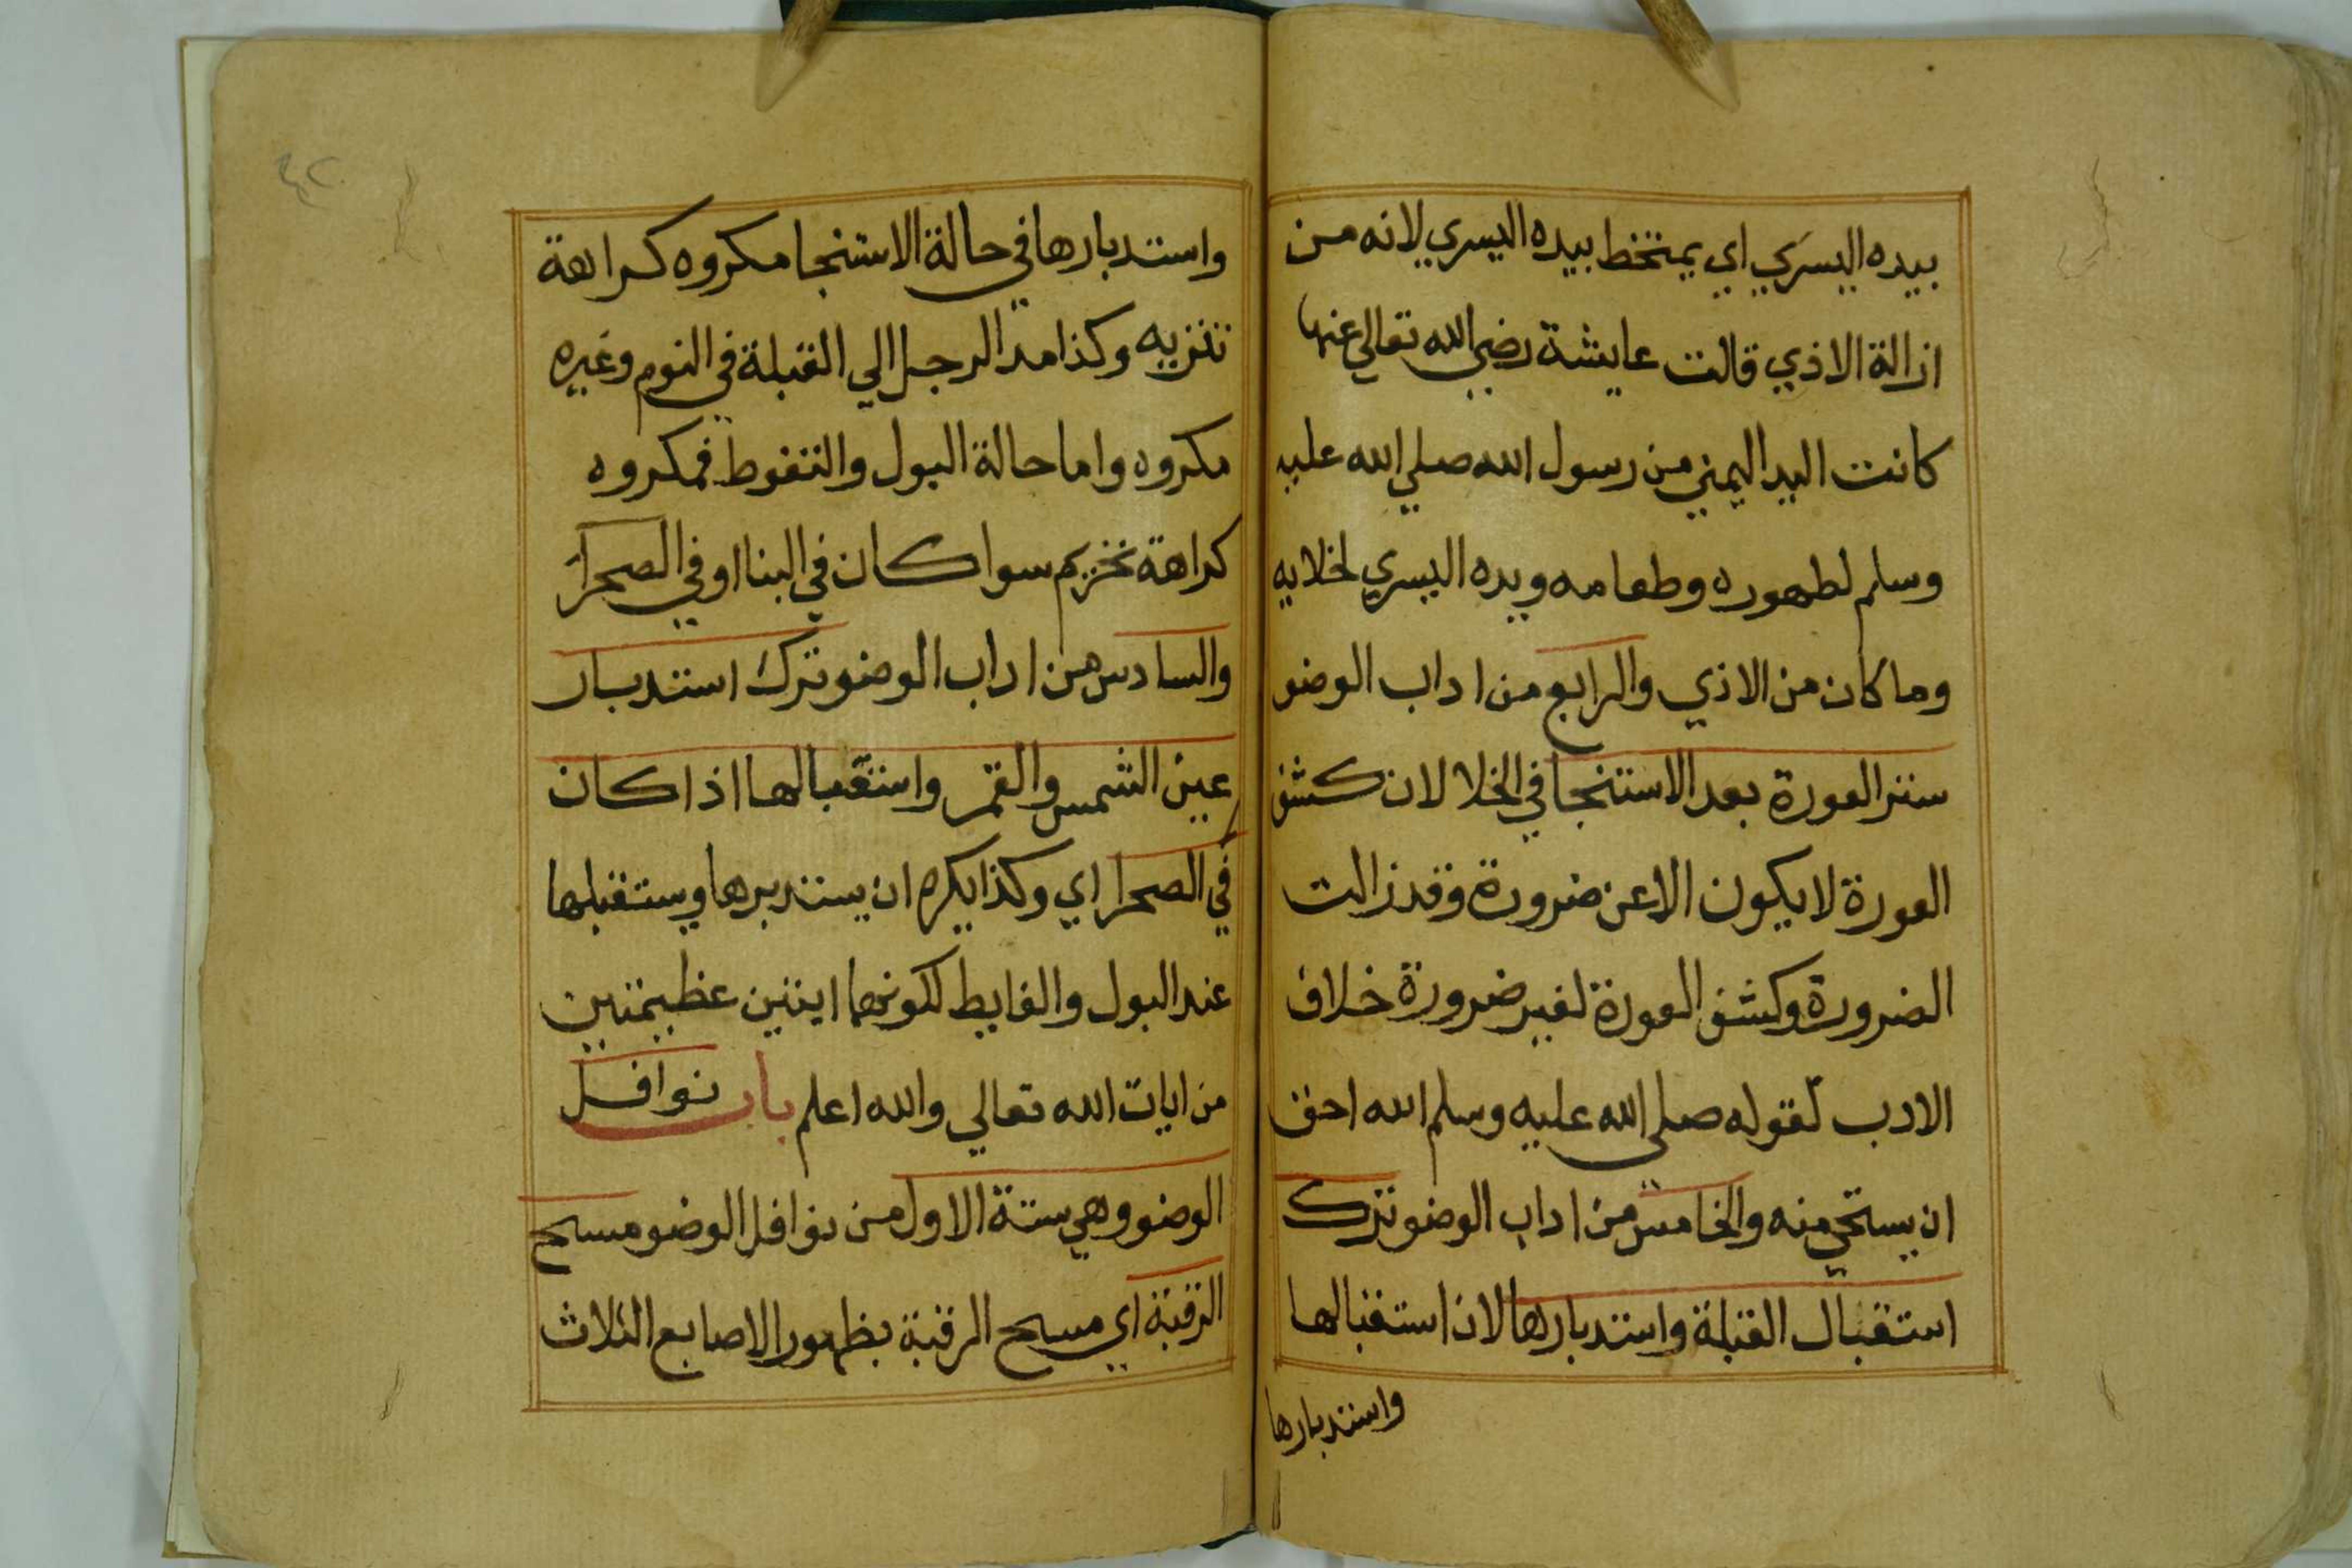 بيده اليسري اي يمتخط بيده اليسري لانه من
ازالة الاذي قالت عايشة رضي الله تعالي عنها
كانت اليد اليمني من رسول الله صلي الله عليه
وسلم لطهوره وطعامه ويده اليسري لخلايه
وما كان من الاذي والرابع من اداب الوضو
ستر العورة بعد الاستنجا في الخلا لان كشف
العورة لا يكون الا عن ضرورة وقد زالت
الضرورة وكشف العورة لغير ضرورة خلاف
الادب لقوله صلى الله عليه وسلم الله احق
ان يستحي منه والخامس من اداب الوضو ترك
استقبال القبلة واستدبارها لان استقبالها
واستدبارها
٤٢
واستدبارها في حالة الاستنجا مكروه كراهة
تنزيه وكذا مد الرجل الي القبلة في النوم وغيره
مكروه واما حالة البول والتغوط فمكروه
كراهة تحريم سوا كان في البنا او في الصحرآ
والسادس من اداب الوضو ترك استدبار
عين الشمس والقمر واستقبالها اذا كان
في الصحرا اي وكذا يكره ان يستدبرها ويستقبلها
عند البول والغايط لكونهما ايتين عظيمتين
من ايات الله تعالي والله اعلم باب نوافل
الوضو وهي ستة الاول من نوافل الوضو مسح
الرقبة اي مسح الرقبة بظهور الاصابع الثلاث